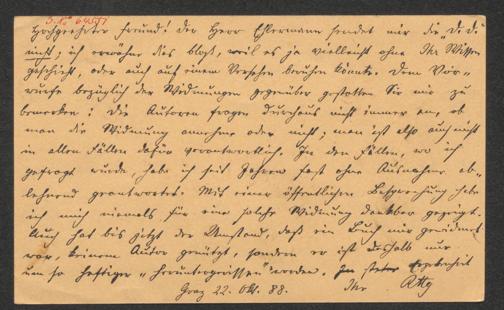 Hochgeehrter Freund! Der Herr Eßermann sendet mir die „Di Di"
nicht; ich erwähne dies bloß, weil es ja vielleicht ohne Ihr Wissen
geschieht, oder auch auf einem Versehen beruhen könnte. Dem Vor=
wurfe bezüglich der Widmungen gegenüber gestatten Sie mir zu
bemerken: Die Autoren fragen durchaus nicht immer an, ob
man die Widmung annehme oder nicht; man ist also auch nicht
in allen Fällen dafür verantwortlich. In den Fällen, wo ich
gefragt wurde, habe ich seit Jahren fast ohne Ausnahme ab=
lehnend geantwortet. Mit einer öffentlichen Besprechung habe
ich mich niemals für eine solche Widmung dankbar gezeigt.
Auch hat bis jetzt der Umstand, daß ein Buch mir gewidmet
war, keinem Autor genützt, sondern er ist deshalb nur
um so heftiger „heruntergerissen" worden. In steter Ergebenheit
Graz 22. Okt. 88. Ihr